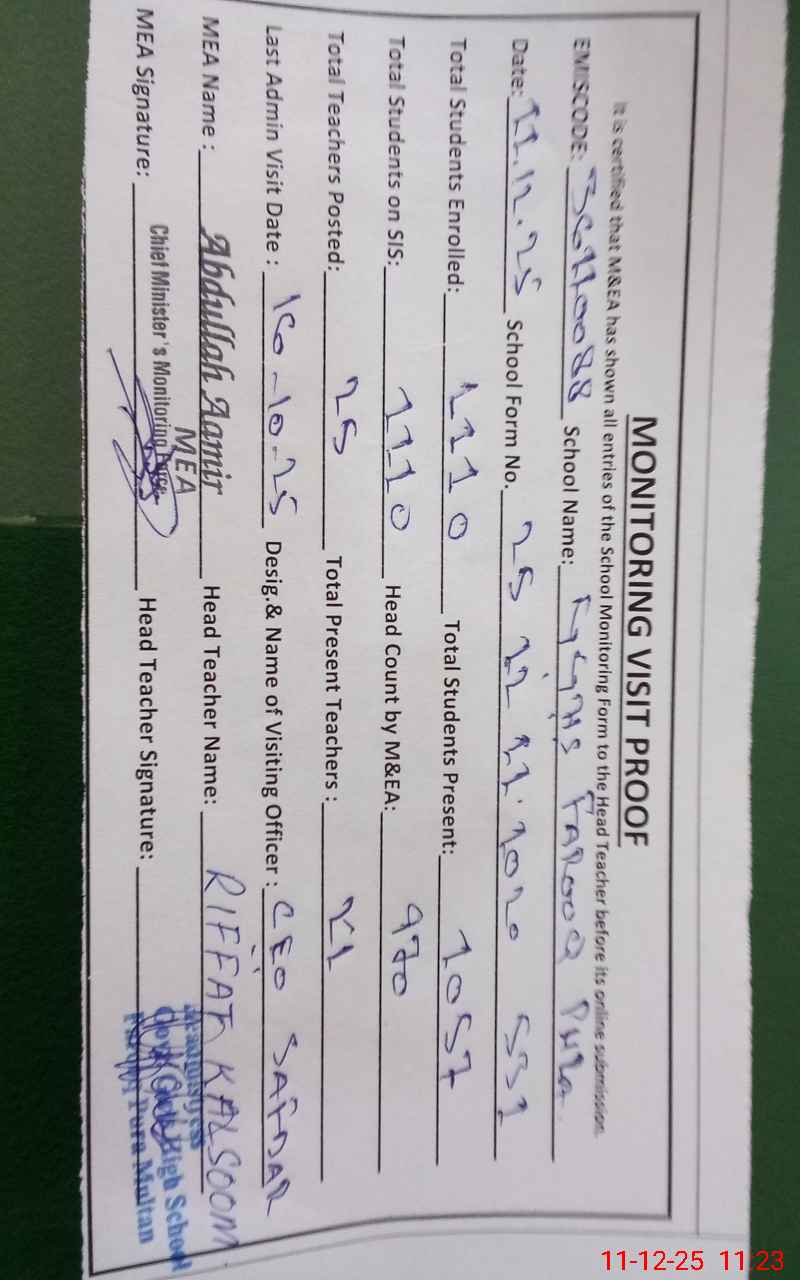 MONITORING VISIT PROOF
It is certified that M&EA has shown all entries of the School Monitoring Form to the Head Teacher before its online submission.
EMISCODE: 36110088 School Name: FAROOQ PURA
Date: 11.12.25 School Form No. 25 12 11 1020 531
Total Students Enrolled: 1110 Total Students Present: 1057
Total Students on SIS: 1110 Head Count by M&EA: 970
Total Teachers Posted: 25 Total Present Teachers : 21
Last Admin Visit Date : 16-10-25 Desig.& Name of Visiting Officer : CEO SAFDAR
MEA Name : Abdullah Aamir Head Teacher Name: RIFFAT KALSOOM
MEA
Chief Minister's Monitoring Force
MEA Signature: Head Teacher Signature:
Headmistress
Govt. Girls High School
Farooq Pura Multan
11-12-25 11:23